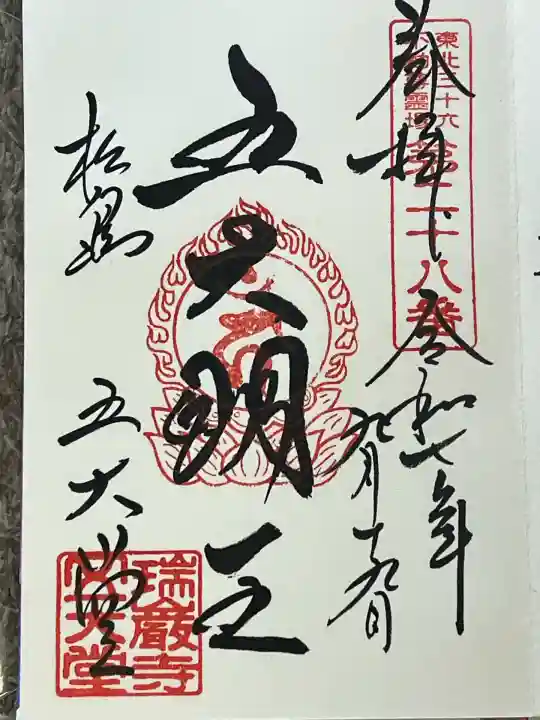 東北三十六
不動尊霊場
第二十八番
奉拝
令和七年
九月十九日
五大明王
松島
五大堂
瑞巌寺
五大堂